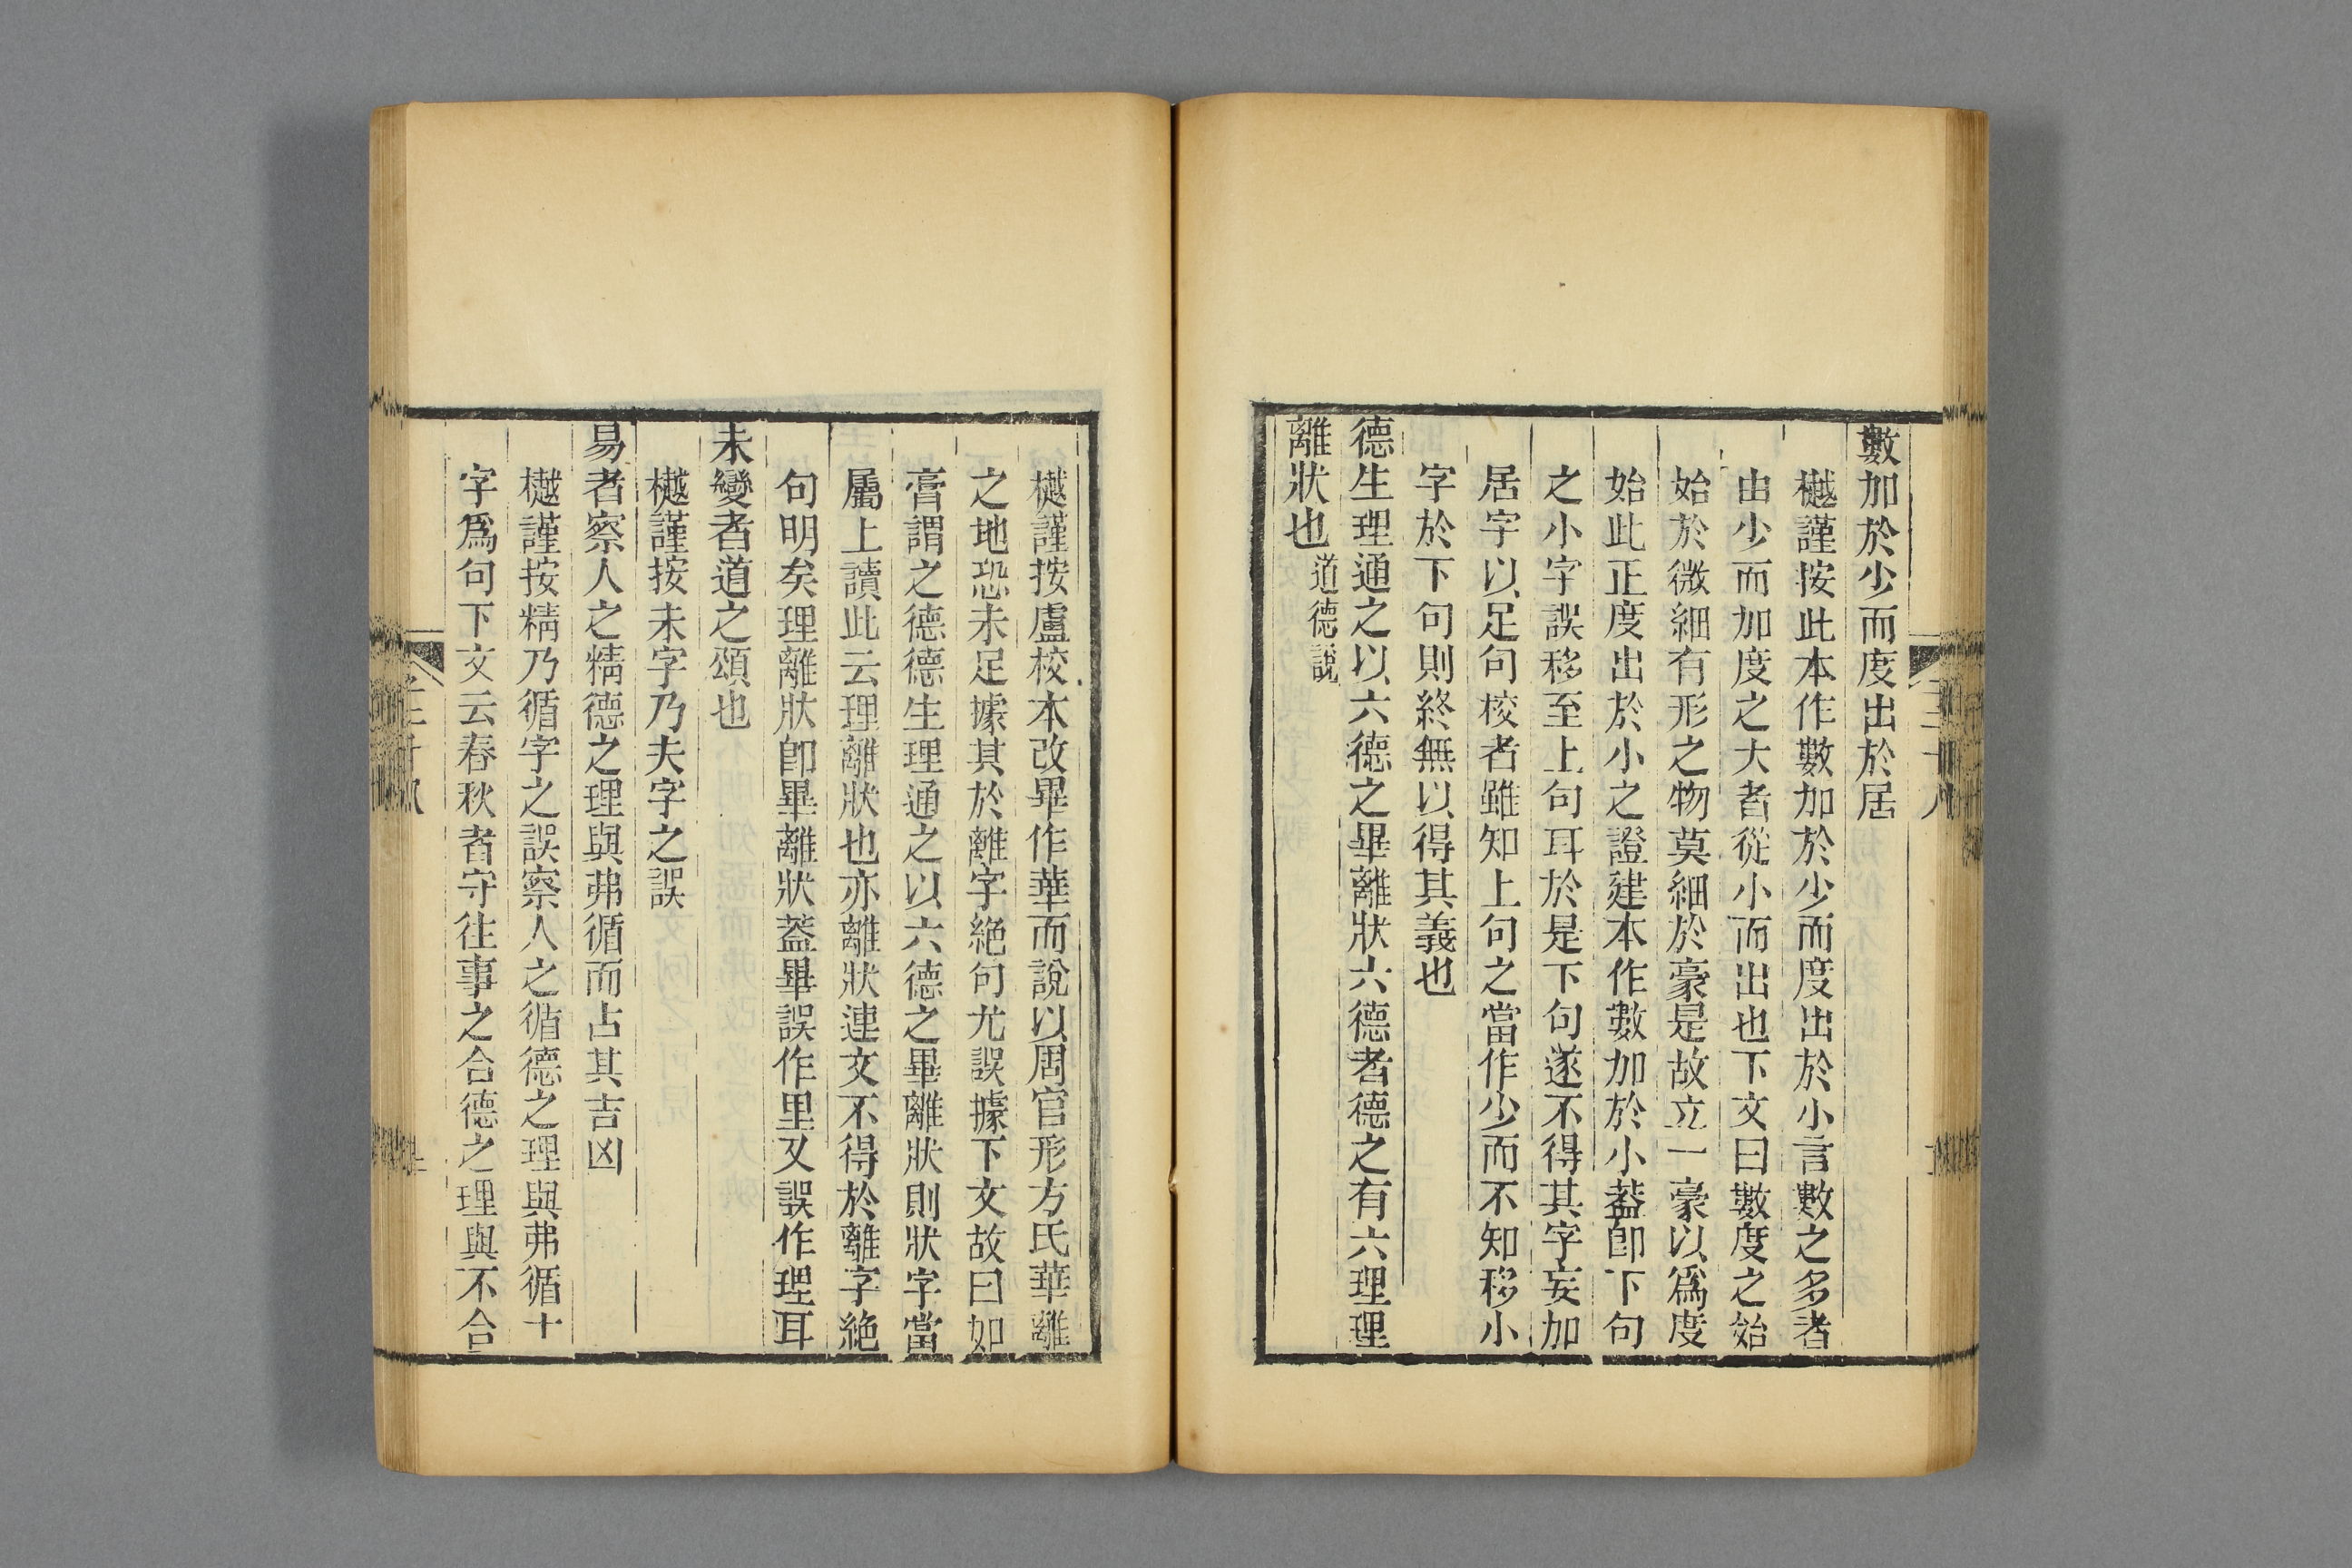 數加於少而度出於居
樾謹按此本作數加於少而度出於小言數之多者
由少而加度之大者從小而出也下文曰數度之始
始於微細有形之物莫細於豪是故立一豪以爲度
始此正度出於小之證建本作數加於小葢卽下句
之小字誤移至上句耳於是下句遂不得其字妄加
居字以足句校者雖知上句之當作少而不知移小
字於下句則終無以得其義也
德生理通之以六德之畢離狀六德者德之有六理理
離狀也道德說
樾謹按盧校本改畢作華而說以周官形方氏華離
之地恐未足據其於離字絕句尤誤據下文故曰如
膏謂之德德生理通之以六德之畢離狀則狀字當
屬上讀此云理離狀也亦離狀連文不得於離字絕
句明矣理離狀卽畢離狀葢畢誤作里又誤作理耳
未變者道之頌也
樾謹按未字乃夫字之誤
易者察人之精德之理與弗循而占其吉凶
樾謹按精乃循字之誤察人之循德之理與弗循十
字爲句下文云春秋者守往事之合德之理與不合